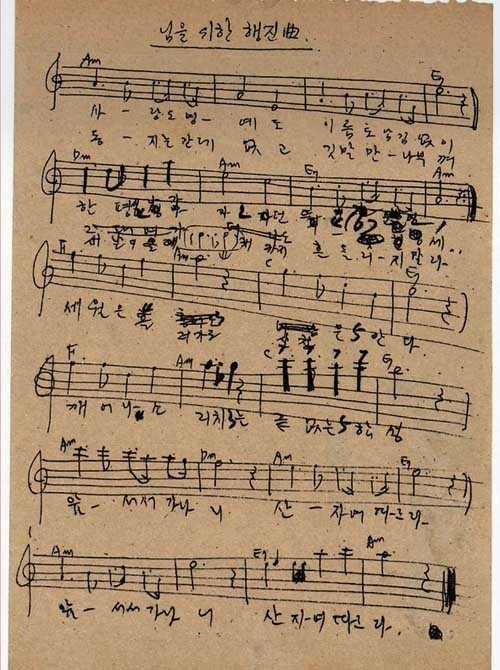 님을 위한 행진曲.
Am E7
사 - 랑도 명 - 예도 이름도 남김 없이
동 - 지는 간데 없고 깃발 만 - 나부 껴
Dm Am E7 Am
한 평생 나 가 자던 맹세,
새 날이 올때 까지 흔 들 리 - 지 말라.
F Am C G
세월은 은 안다
F Am C G
깨어나 소 리치는 끝 없는 함성
Am Dm Am E7
앞 - 서서 가나 니 산 - 자여 따르라
Am E7 Am
앞 - 서서 가나 니 산 자여 따르라.